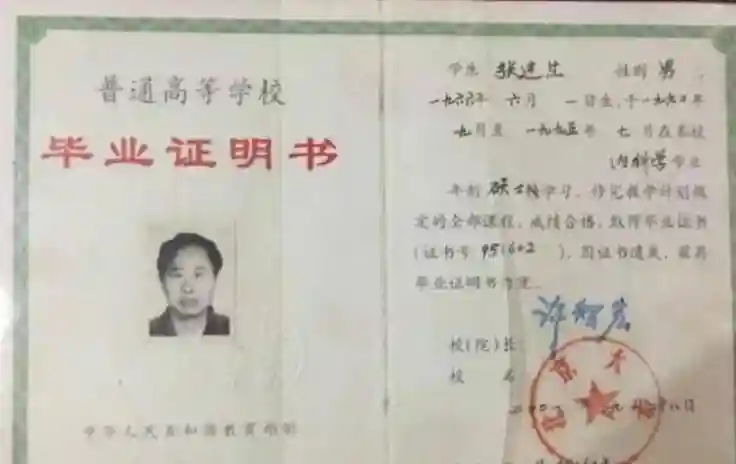 普通高等学校
毕业证明书
中华人民共和国教育部制
学生 张建生 性别 男,
一九六六年 六月 一日生,于一九九二年
九月至 一九九五年 七月在本校
内科学专业
年制 硕士 学习,修完教学计划规
定的全部课程,成绩合格,取得毕业证书
(证书号 951602 ),因证书遗失,兹具
毕业证明书为凭。
许智宏
校(院)长:
校 名
北京大
月 八日